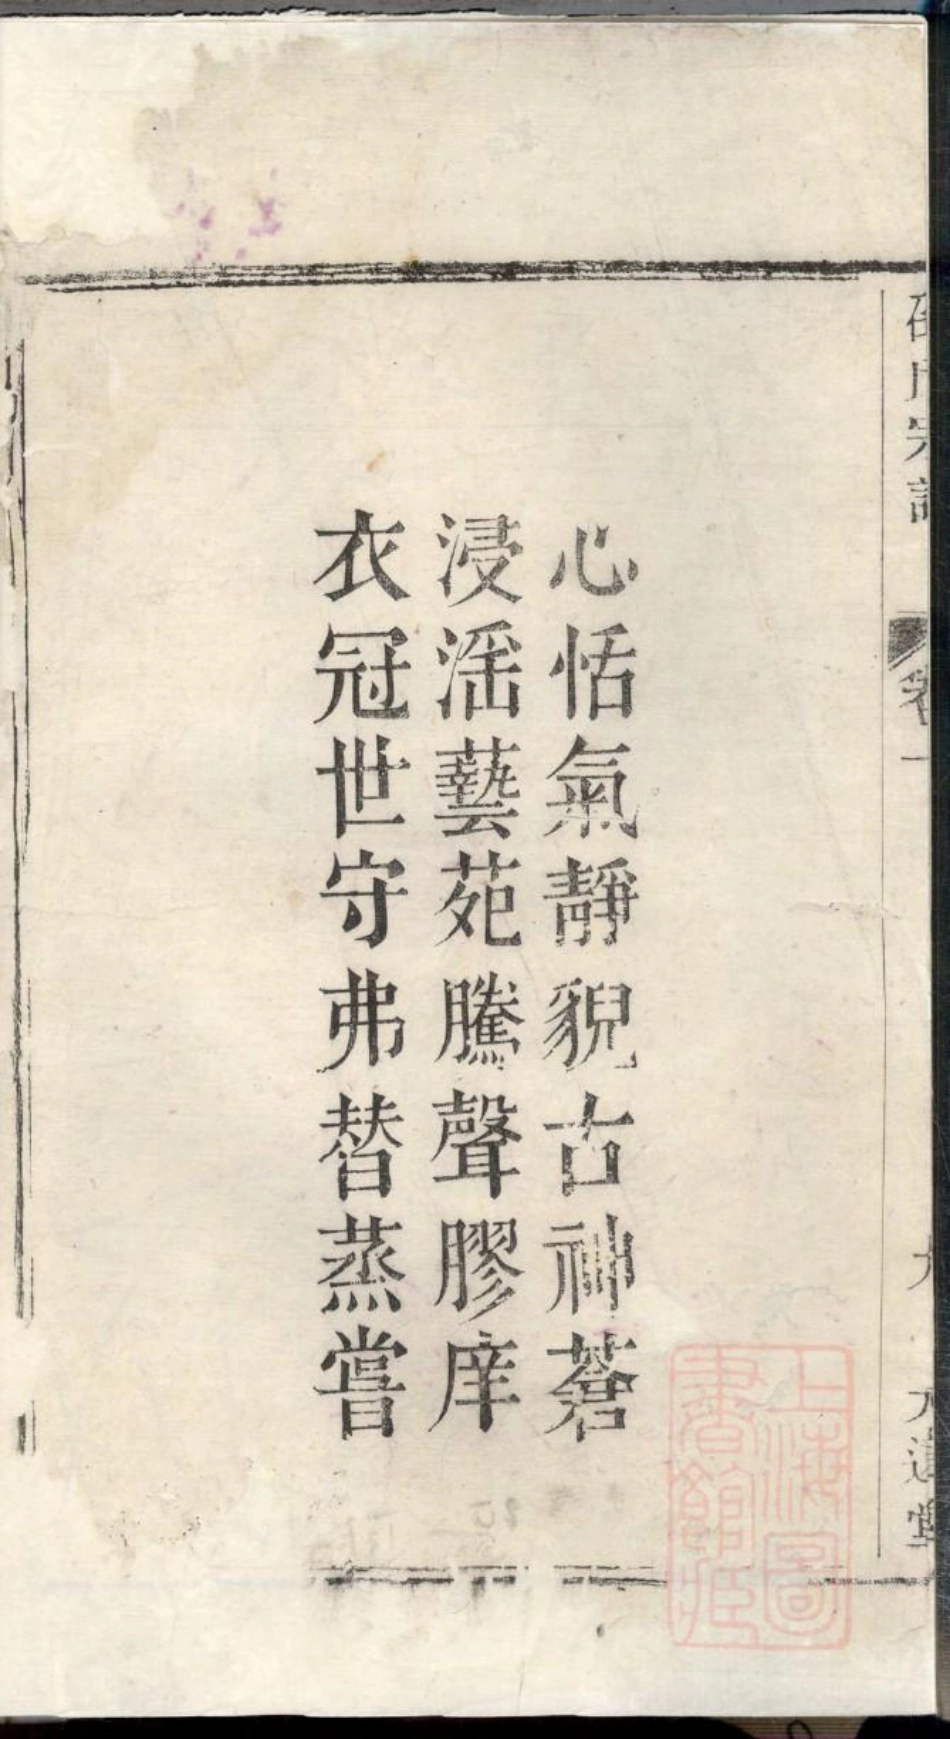 宗譜
卷一
心恬氣靜貌古神蒼
浸滛藝苑騰聲膠庠
衣冠世守弗替蒸嘗
上海圖
書館藏